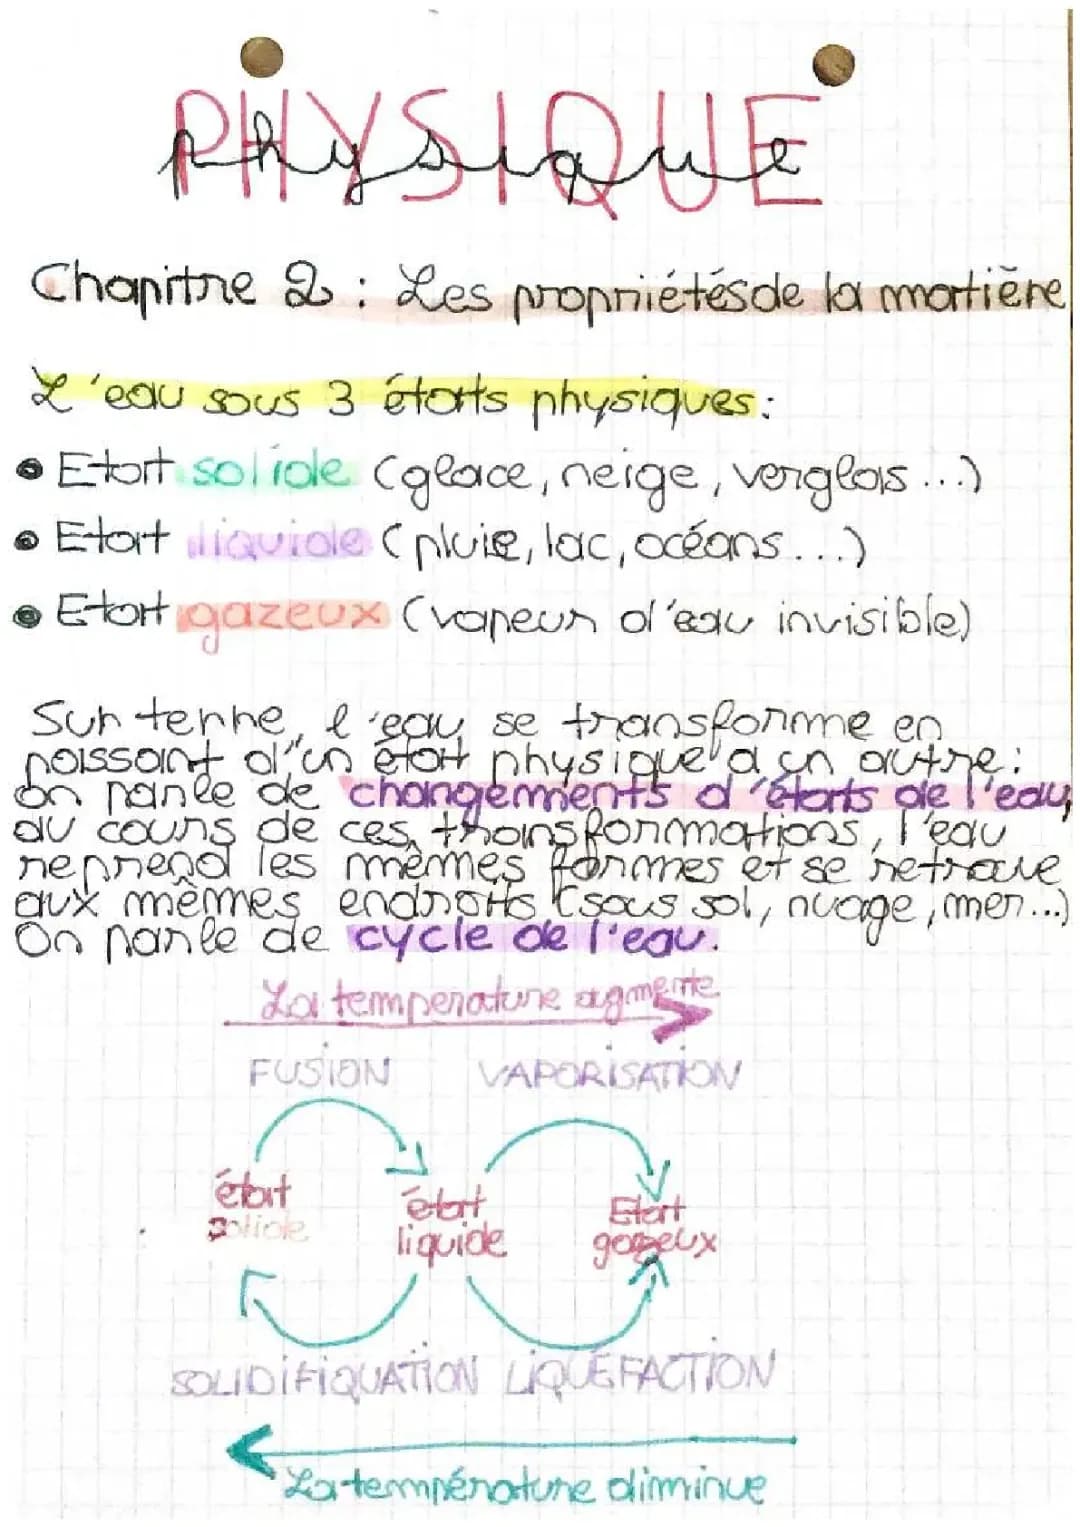 PHYSIQUE
physique
Chapitre 2 : Les propriétés de la matière
L'eau sous 3 états physiques :
• Etat solide (glace, neige, verglas...)
• Etat liquide (pluie, lac, océans...)
• Etat gazeux (vapeur d'eau invisible)
Sur terre, l'eau se transforme en
passant d'un état physique a un autre :
on parle de changements d'états de l'eau,
au cours de ces transformations, l'eau
reprend les mêmes formes et se retrouve
aux mêmes endroits (sous sol, nuage, mer...)
On parle de cycle de l'eau.
La temperature augmente
FUSION VAPORISATION
état solide
état liquide
Etat gazeux
SOLIDIFIQUATION LIQUÉFACTION
La température diminue